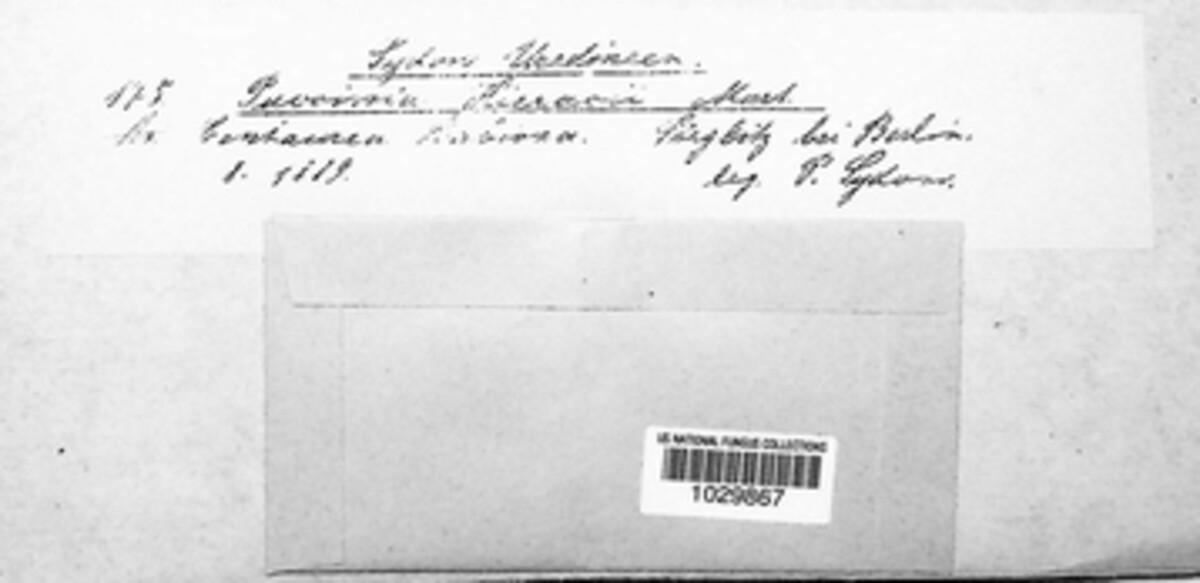 Sydow Uredineen.
175. Puccinia Hieracii Mart.
Centaurea bei Berlin.
8. 1889. leg. P. Sydow.
US NATIONAL FUNGUS COLLECTIONS
1029867